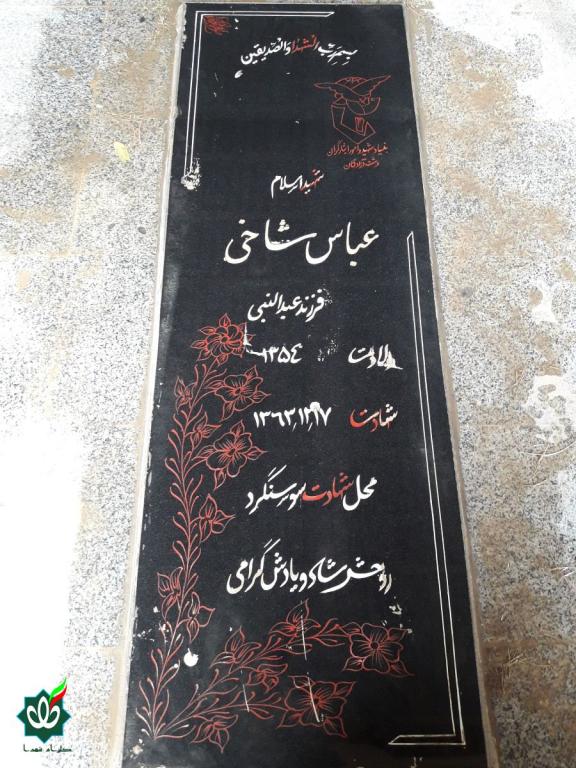 بسم رب الشهدا والصدیقین
بنیاد شهید و امور ایثارگران
دشت آزادگان
شهید اسلام
عباس شاخی
فرزند عبدالنبی
ولادت ۱۳۵۴
شهادت ۱۳۶۳٫۱۲٫۱۷
محل شهادت سوسنگرد
روحش شاد و یادش گرامی
گلزار شهدا